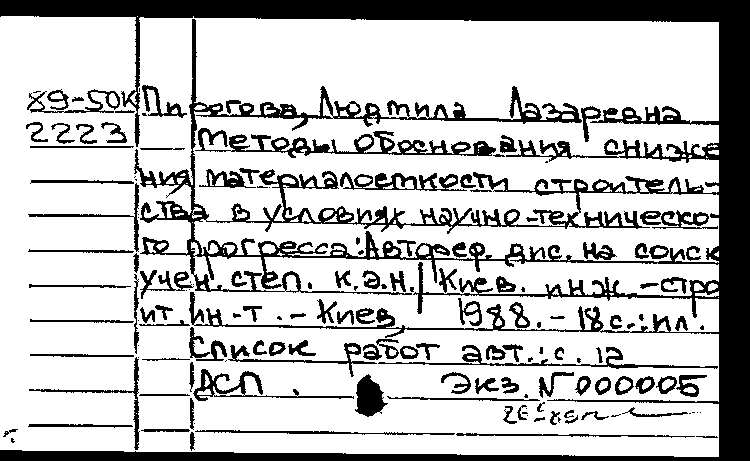 89-50К Пирогова, Людмила Лазаревна
2223 Методы обоснования сниже
ния материалоемкости строитель-
ства в условиях научно-техническо-
го прогресса: Автореф. дис. на соиск
учен. степ. к.э.н. / Киев. инж.-стро
ит. ин-т. - Киев, 1988. - 18 с.: ил.
Список работ авт.: с. 12
ДСП. Экз. № 000005